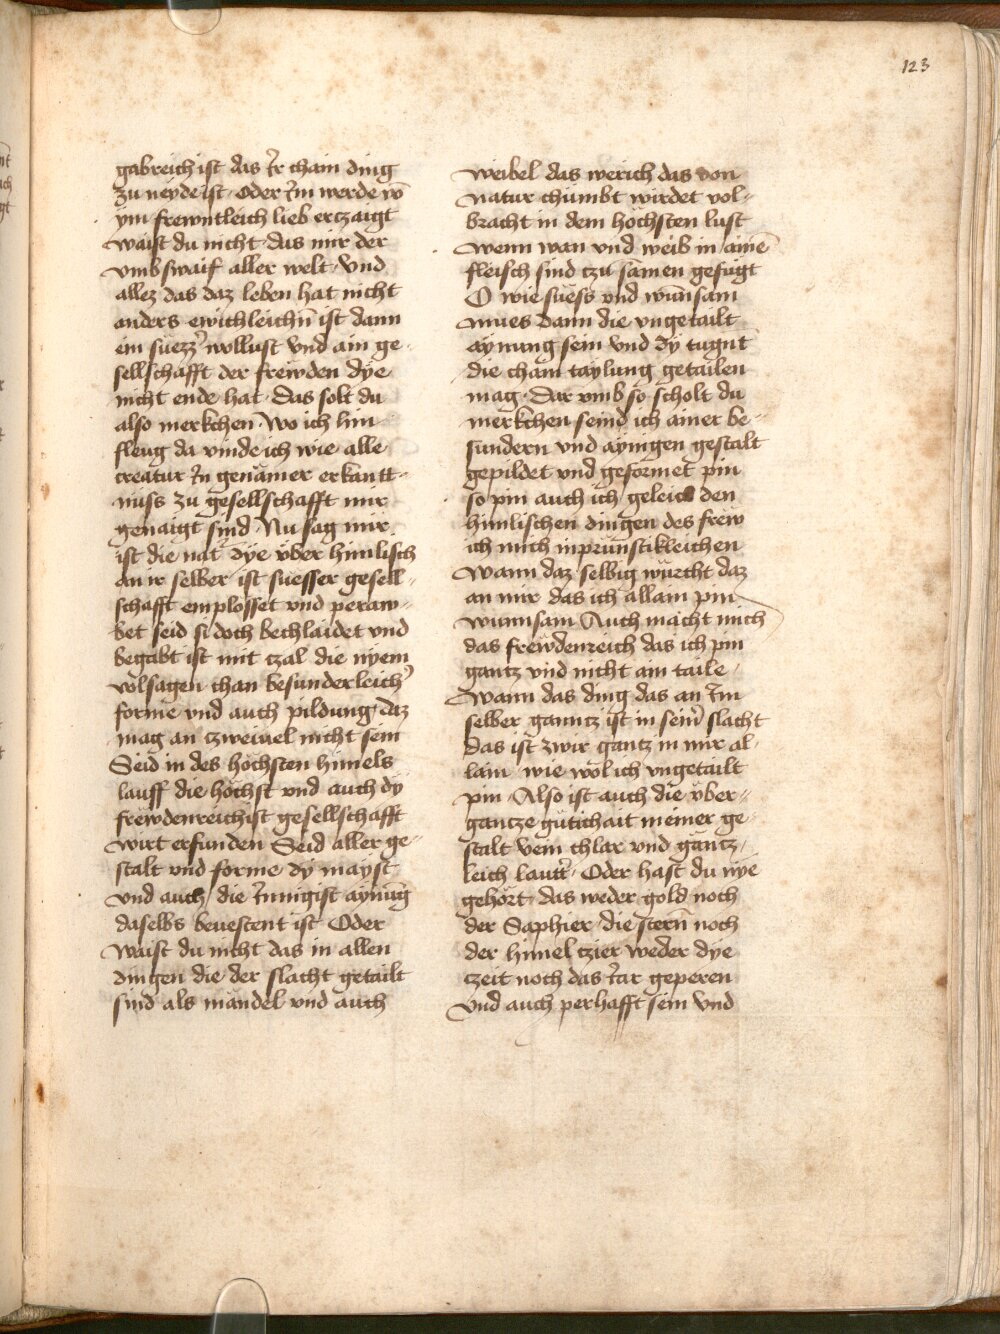 123
gabreich ist das ir chain ding
zu neyde ist · Oder im werde vō
ym frewntleich lieb erczaigt
waist du nicht · das mir der
vmbswaif aller welt · Vnd
allez das daz leben hat nicht
anders ewichleichn̄ ist dann
ein süezz' wollust vnd ain ge-
sellschafft der frewden dye
nicht ende hat · Das solt du
also merkchen · Wo ich hin
fleug da vinde ich wie alle
creatur in genämer erkantt-
nüss zu gesellschafft mir
genaigt sind · Nu sag mir
ist die nat dye über himlisch
an ir selber ist suesser gesell-
schafft emplösset vnd peraw-
bet seid si doch bechlaidet vnd
begabt ist mit czal die nyem
volsagen chan besunderleich'
forme vnd auch pildung · daz
mag an czweiuel nicht sein
Seid in des höchsten himels
lauff die höchst vnd auch dy
frewdenreichist gesellschafft
wirt erfunden Seid aller ge-
stalt vnd forme dy mayst
vnd auch die innigist aynūg
daselbs beuestent ist Oder
waist du nicht das in allen
dingen die der slacht getailt
sind als mandel vnd auch
weibel das werich das von
natur chümbt wirdet vol-
bracht in dem höchsten lust
wenn man vnd weib in ainē
fleisch sind czu samen gefügt
O wie suess vnd wunsam
mues dann die vngetailt
aynung sein vnd dy tugnt
die chain taylung getailen
mag · Dar vmb so scholt du
merkchen seind ich ainer be-
sundern vnd aynigen gestalt
gepildet vnd geformet pin
so pin auch ich geleich den
himlischen dingen des frew
ich mich inprünstikleichen
Wann daz selbig würcht daz
an mir das ich allain pin
wunnsam Auch macht mich
das frewdenreich das ich pin
gantz vnd nicht ain taile ·
Wann das ding das an im
selber ganntz ist in sein' slacht
das ist zwir gantz in mir al-
lain wie wol ich vngetailt
pin · Also ist auch die über-
gantze gütichait meiner ge-
stalt vein chlar vnd gantz-
leich lautt' · Oder hast du nye
gehört das weder gold noch
der Saphier die stern̄ noch
der himel czier weder dye
czeit noch das iar geperen
vnd auch perhafft sein vnd